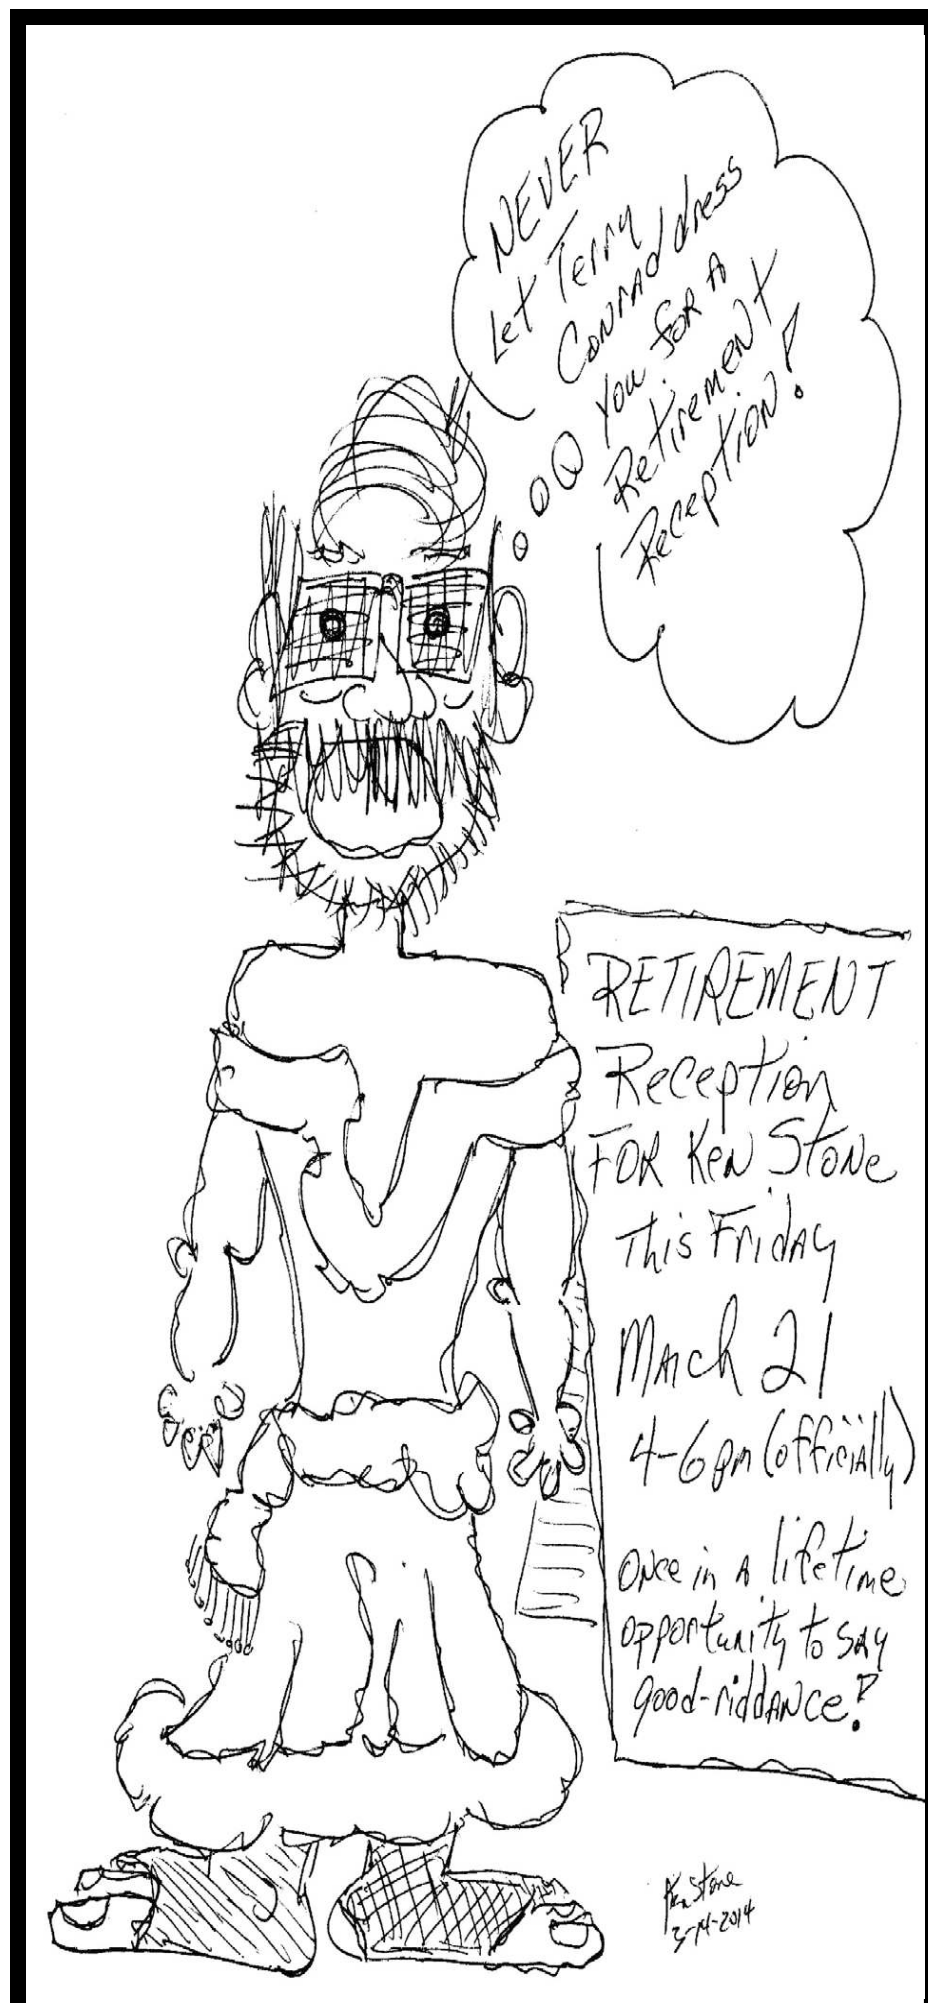 NEVER
Let Terry
Conrad dress
You for a
Retirement
Reception!
RETIREMENT
Reception
FOR Ken Stone
This Friday
March 21
4-6pm (officially)
Once in a lifetime
opportunity to say
good-riddance!
Ken Stone
3-14-2014